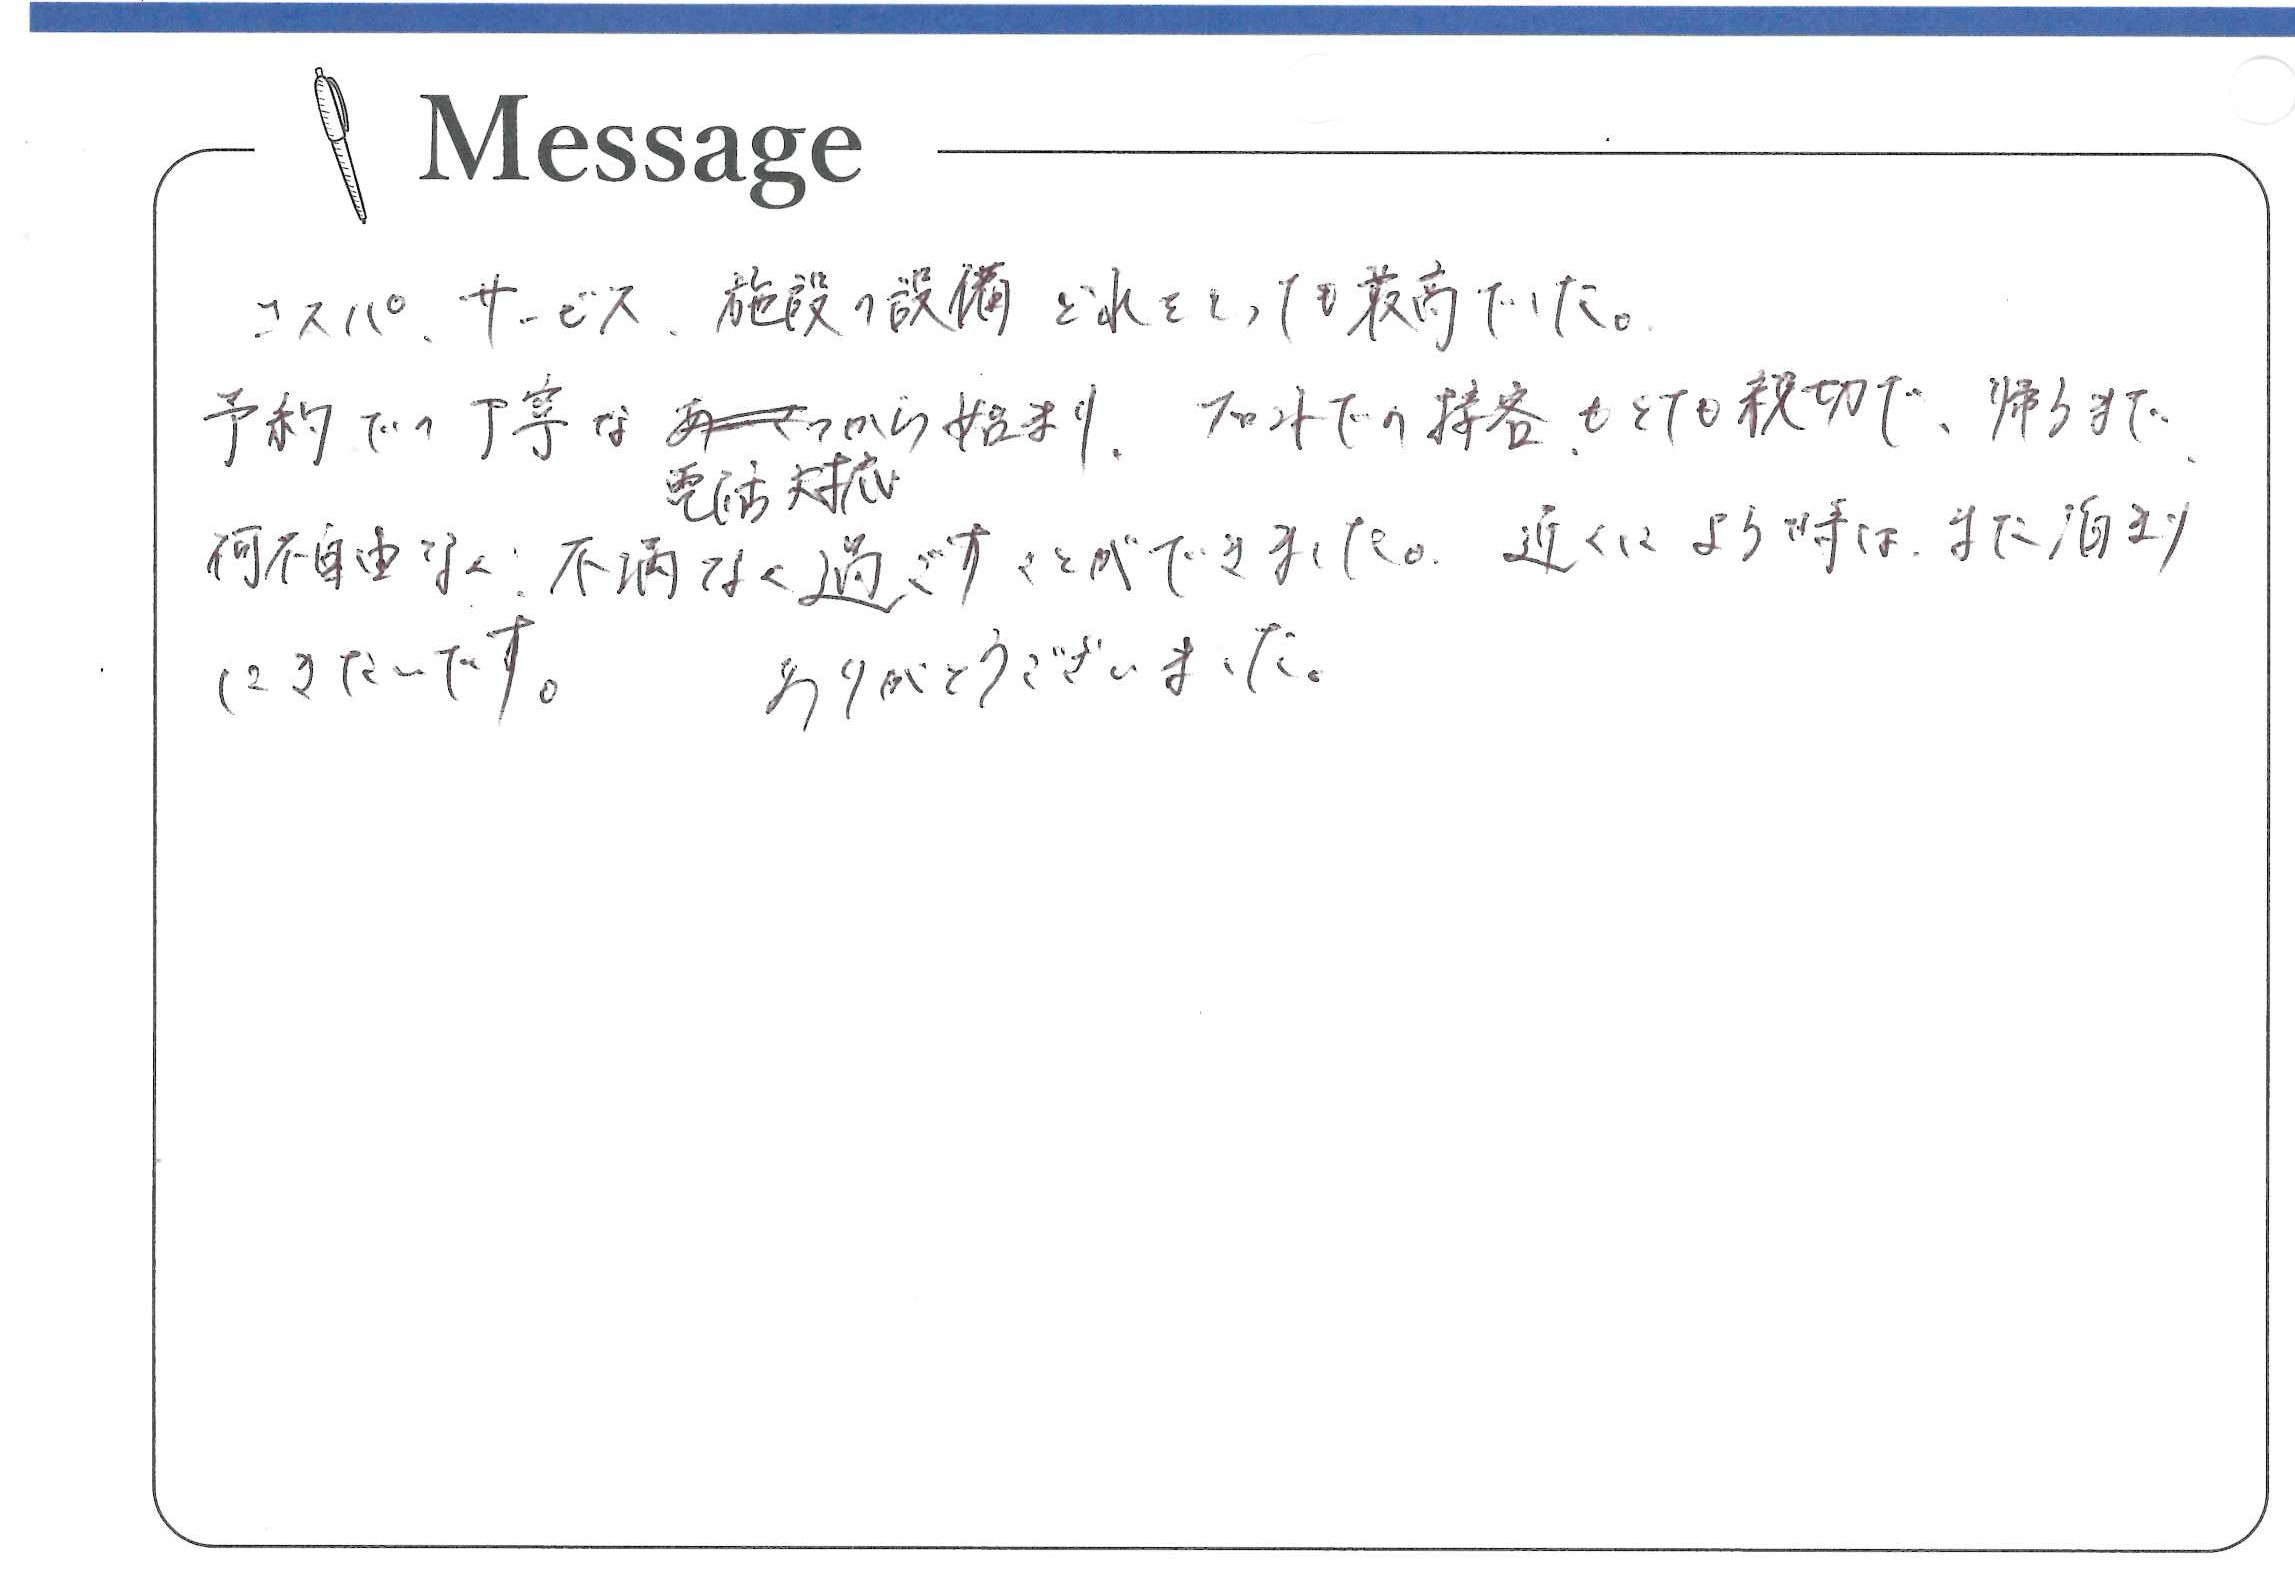 Message
コスパ、サービス、施設の設備 どれをとっても最高でした。
予約での丁寧な から始まり、フロントでの接客もとても親切で、帰るまで、
電話対応
何不自由なく、不満なく過ごすことができました。近くによる時は、また泊まり
にきたいです。 ありがとうございました。